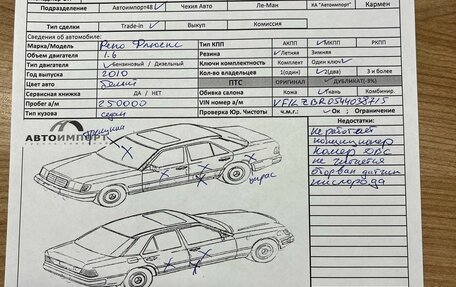 Подразделение Автоимпорт48 ✓ Чехия Авто Ле-Ман КА "Автоимпорт" Кармен
Тип сделки Trade-in ✓ Выкуп Комиссия
Сведения об автомобиле:
Марка/Модель Рено Флюенс Тип КПП АКПП ✓МКПП
Объем двигателя 1.6 Резина Зимняя Летняя
Тип двигателя ✓Бензиновый / Дизельный Ключи комплектность Комплект Один ключ✓
Год выпуска 2010 Кол-во владельцев 1(один) ✓2(два) 3 и более
Цвет авто Белый ПТС ОРИГИНАЛ ✓ДУБЛИКАТ(-3%)
Сервисная книжка ДА / НЕТ Обивка салона Кожа ✓Ткань Комбинир.
Пробег а/м 250000 VIN номер а/м
Тип кузова седан Проверка Юр. Чистоты ч.м.г.: ✓Ок ; Ограничение
АВТОИМПОРТ
Недостатки:
не работает
кондиционер
номер ДВС
не читается
оторван датчик
кислорода
окрас